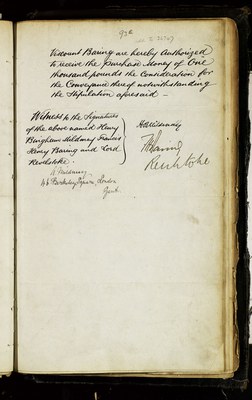 Viscount Baring are hereby Authorized
to receive the purchase Money of One
thousand pounds the Consideration for
the Conveyance thereof notwithstanding
the Stipulation aforesaid —
Witness to the Signatures
of the above named Henry
Bingham Mildmay Francis
Henry Baring and Lord
Revelstoke.
HBMildmay
FHBaring
Revelstoke
A Mildmay
46 Berkeley Square, London
Gent.